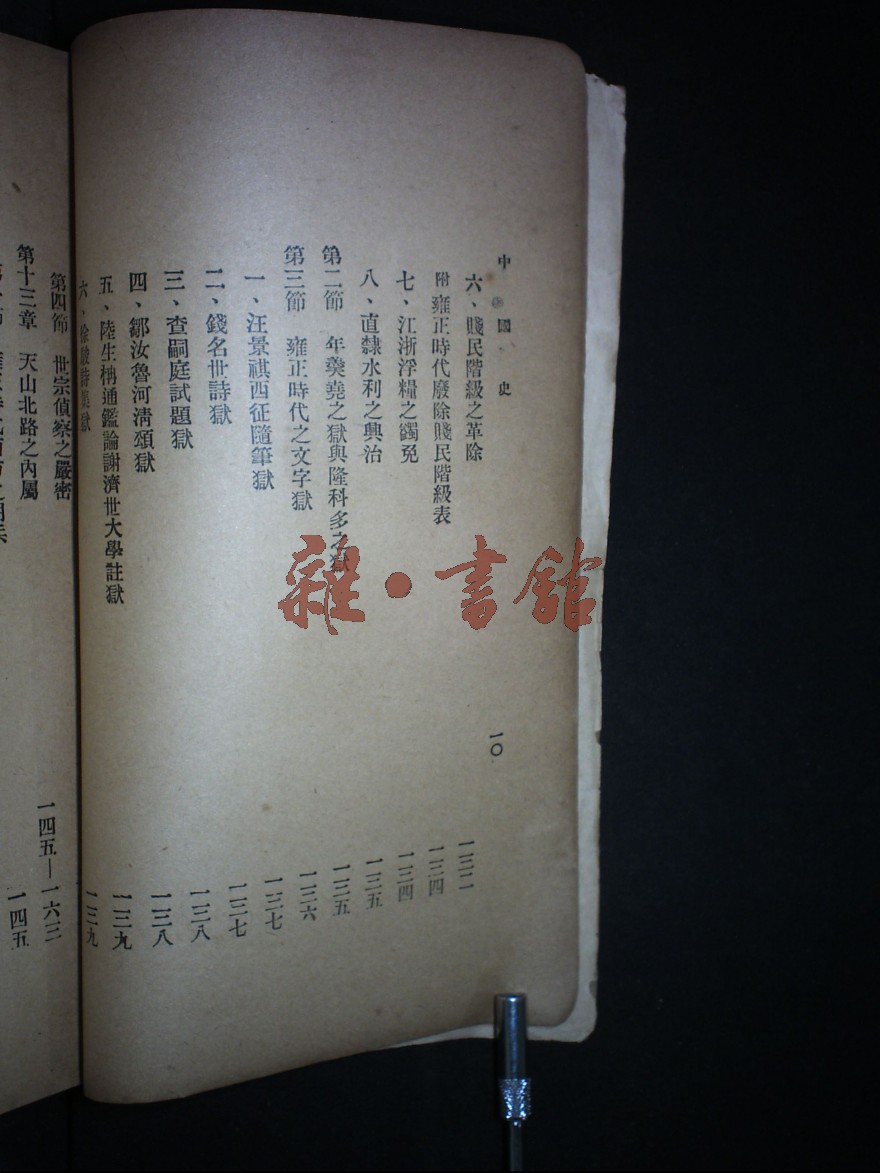 中國史 一〇
六、賤民階級之革除 一三二
附 雍正時代廢除賤民階級表 一三四
七、江浙浮糧之蠲免 一三四
八、直隸水利之興治 一三五
第二節 年羹堯之獄與隆科多之獄 一三五
第三節 雍正時代之文字獄 一三六
一、汪景祺西征隨筆獄 一三七
二、錢名世詩獄 一三七
三、查嗣庭試題獄 一三八
四、鄒汝魯河清頌獄 一三八
五、陸生枏通鑑論謝濟世大學註獄 一三九
六、徐駿詩集獄 一三九
第四節 世宗偵察之嚴密
第十三章 天山北路之內屬 一四五—一六三
一四五
雜·書館